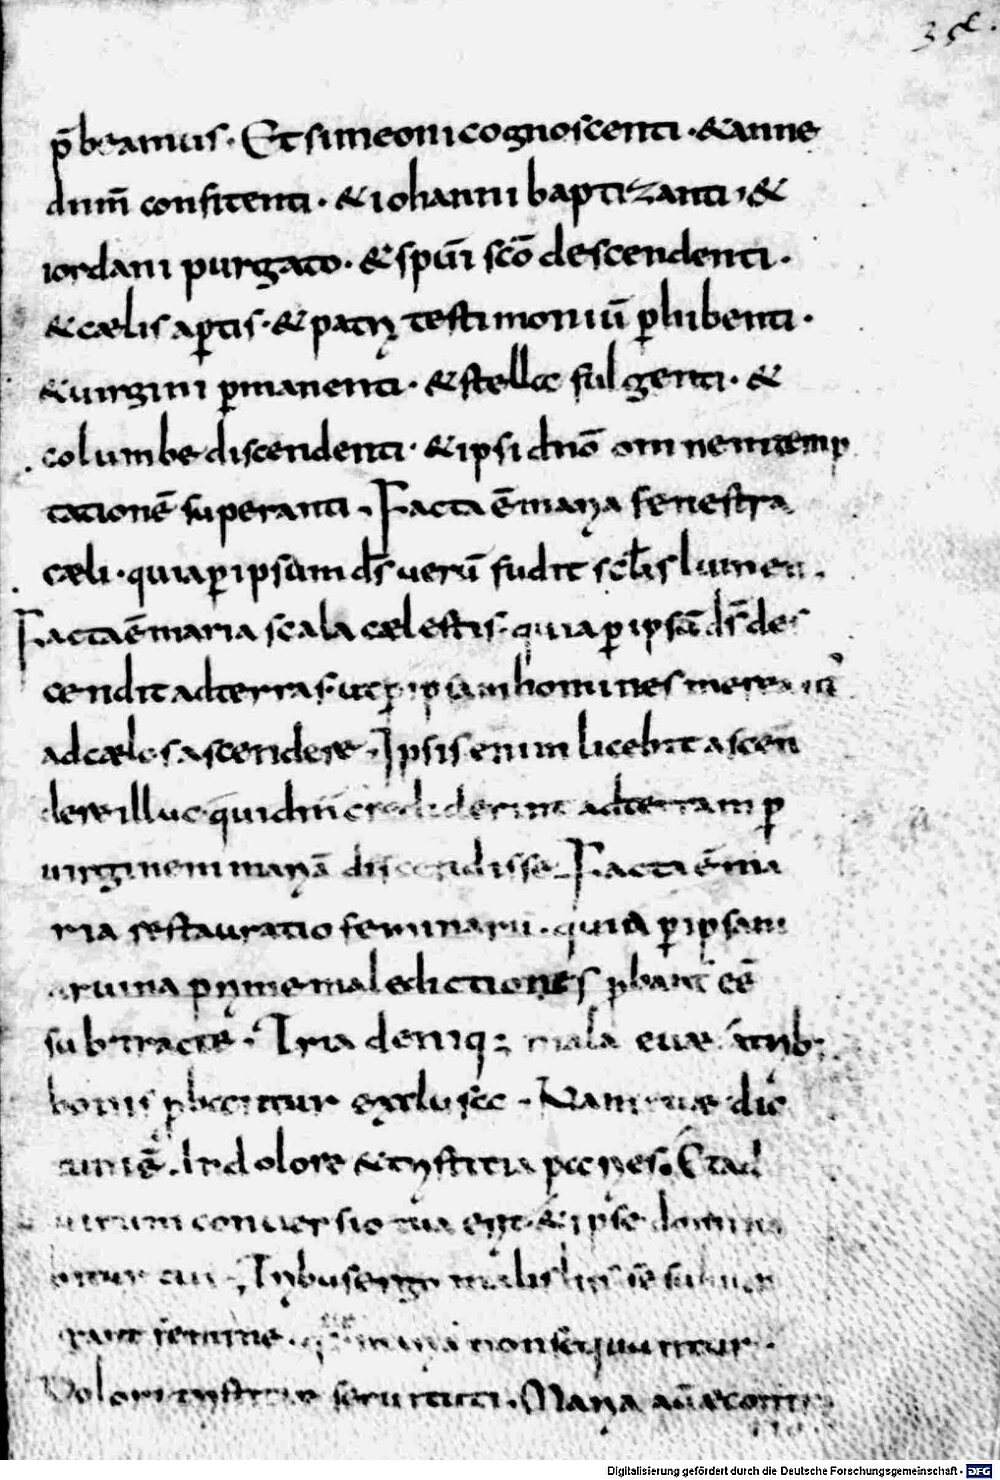 35t.
p̄beamus. Et simeoni cognoscenti. & anne
dnm̄ confitenti. & iohanni baptizanti, &
iordani purgato. & spūi scō descendenti.
& cælis aꝑtis. & patri testimoniū ꝑhibenti.
& uirgini ꝑmanenti. & stellæ fulgenti. &
columbe discendenti. & ipsi dnō omnem temp
tationē superanti. Facta ē maria fenestra
cæli. quia ꝑ ipsam ds̄ uerū fudit sc̄lis lumen.
Facta ē maria scala cælestis. quia ꝑ ipsā ds̄ des
cendit ad terras. ut ꝑ ipsam homines mereant᷑
ad cælos ascendere. Ipsis enim licebit ascen
dere illuc qui dn̄i crediderint ad terram ꝑ
uirginem mariā discendisse. Facta ē ma
ria restauratio feminarū. quia ꝑ ipsam
a ruina prime maledictiones ꝓbant᷑ eē
subtracte. Tria deniq; mala euæ trib;
bonis ꝓbentur exclusæ. Nam euæ dic̄
In dolore & tristitia paries. Et ad
uirum conuersio tua erit. & ipse domina
bitur tui. Tribus ergo malis his
femine. maria non sequuntur.
Dolori tristitiæ seruituti. Maria aū